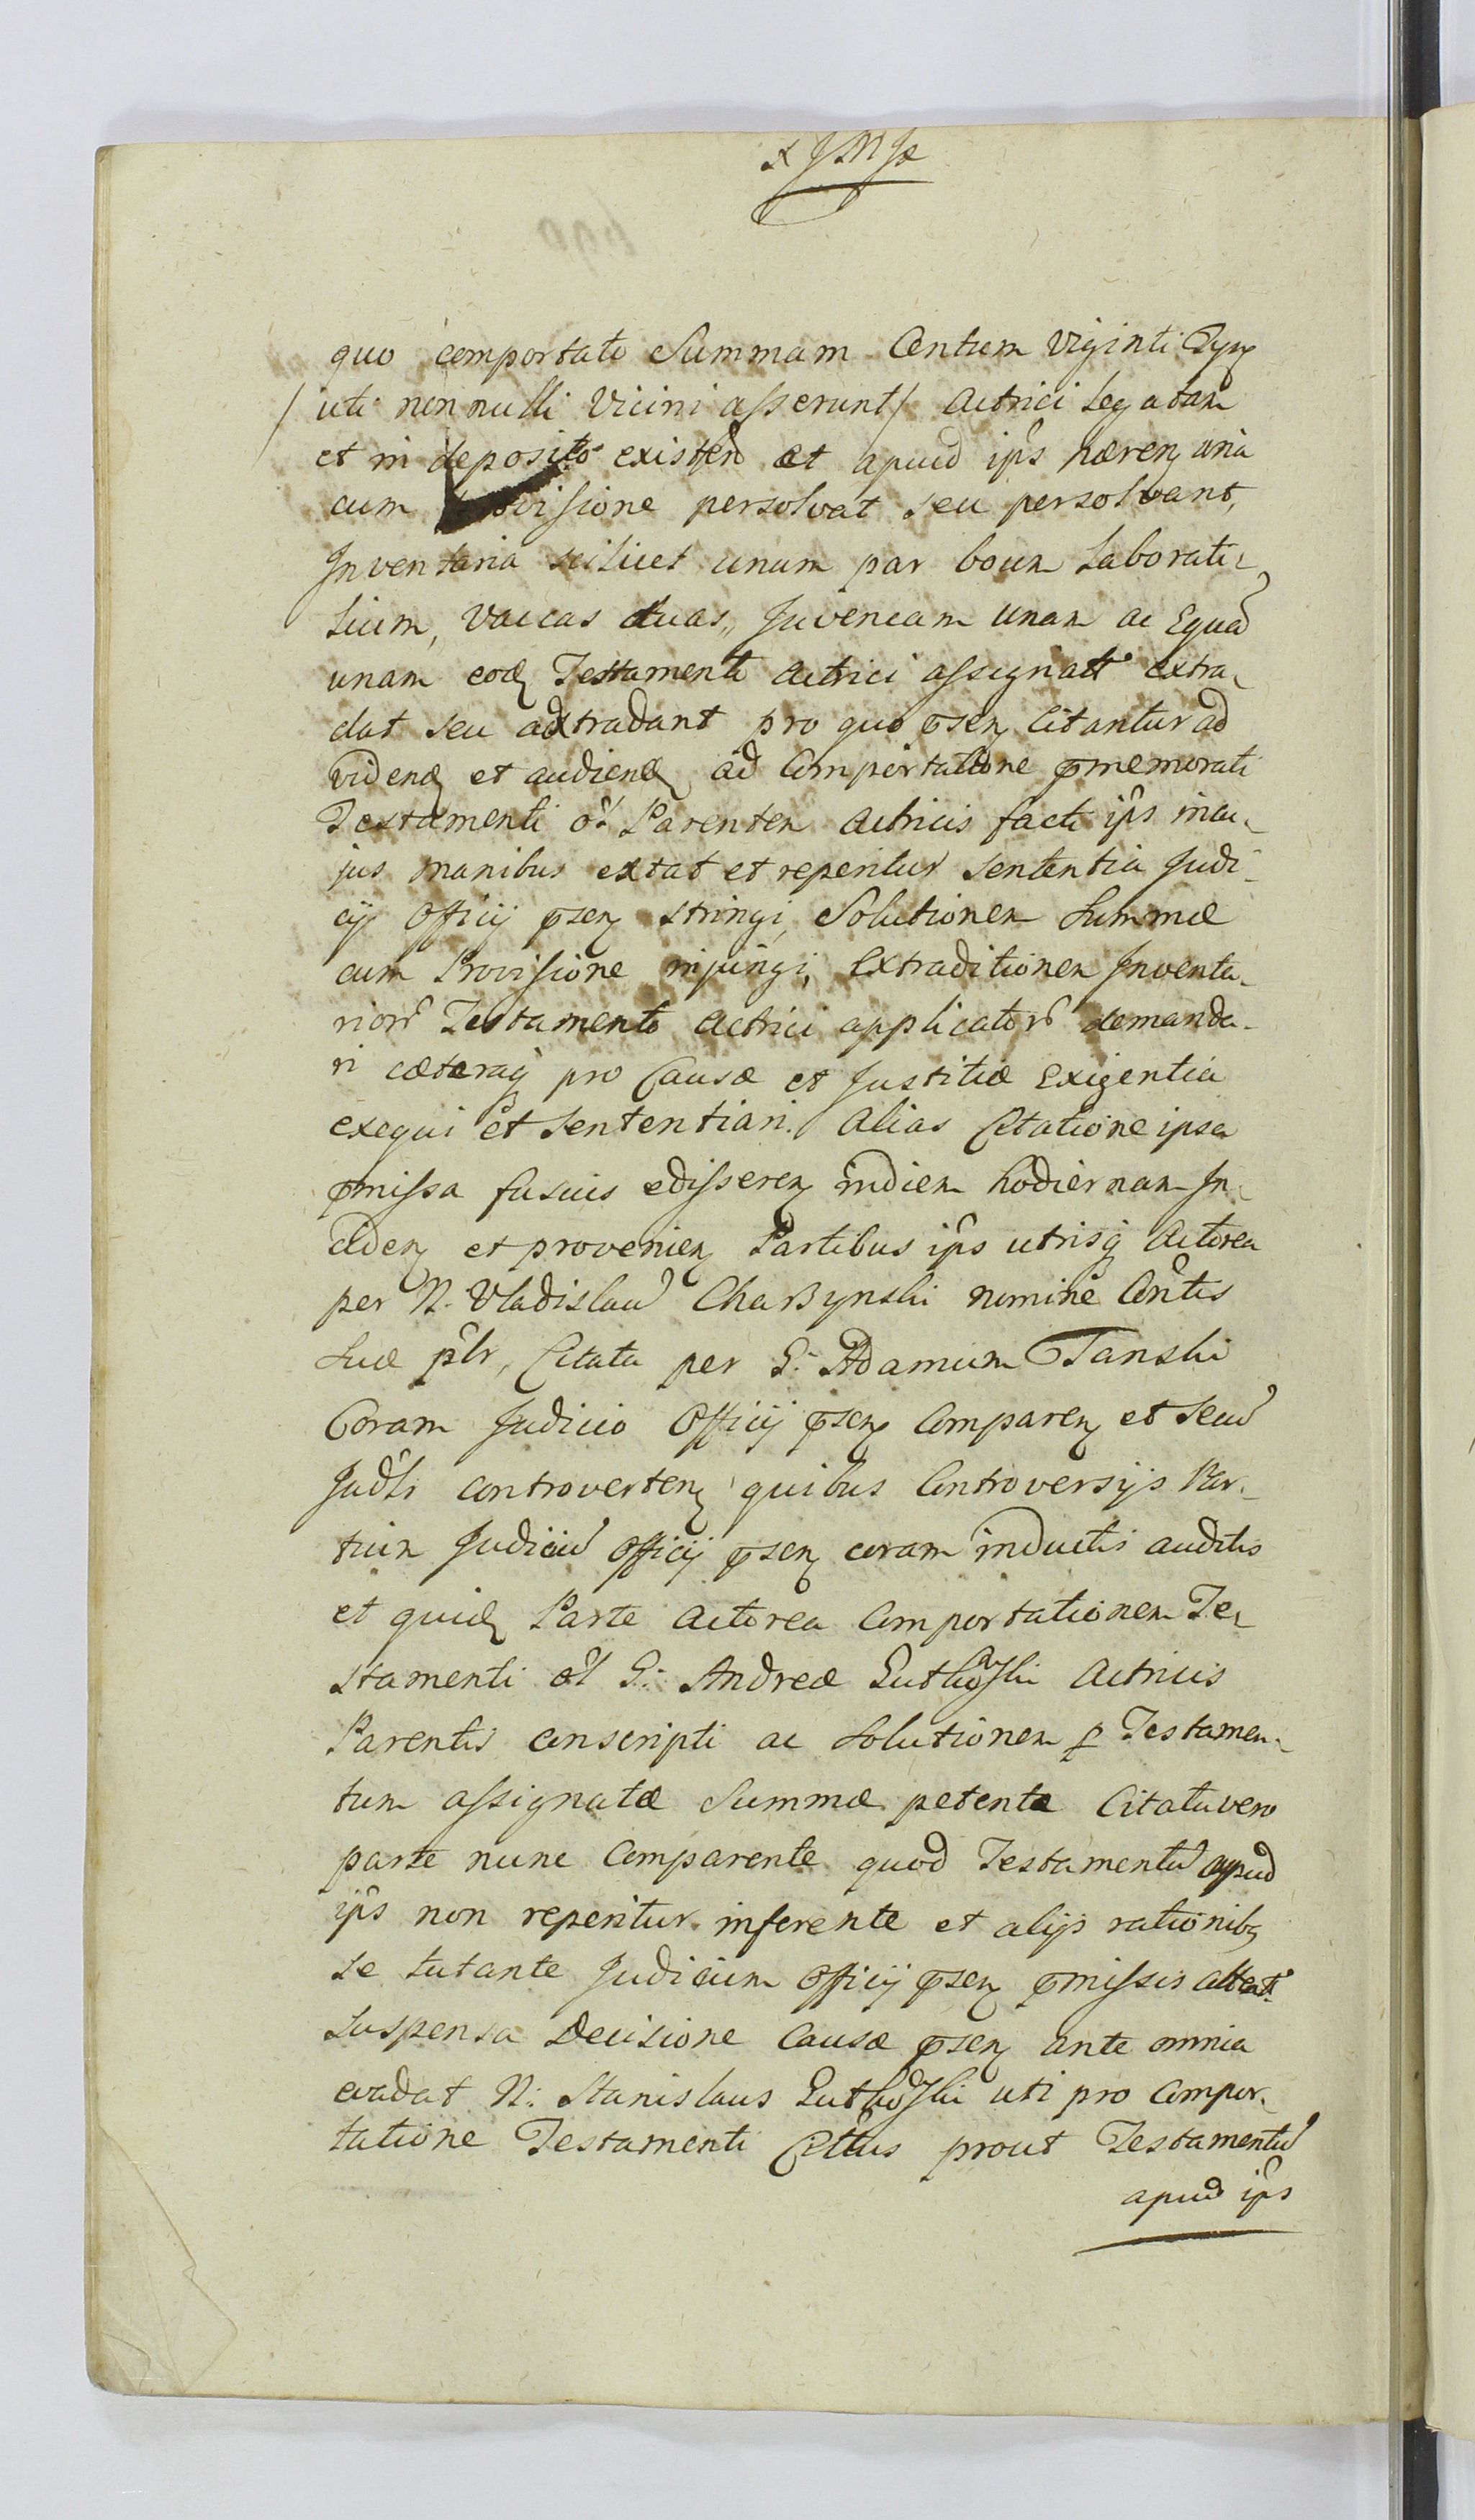 quo comportato Summam Centum Viginti
/uti nonnulli Vicini asserunt/ Actrici Legatam
et in deposito existen et apud ips hæren una
cum Provisione persolvat seu persolvant,
Inventaria scilicet unum par boum Laborati-
lium, Vaccas duas, Juvencam unam ac Equam
unam eod Testamento Actrici assignat extra-
dat seu extradant pro quo psen Citantur ad
vidend et audiend ad Comportatione pmemorati
Testamenti ol Parentem Actricis facti ips in cu-
jus manibus extat et reperitur sententia Judi-
cij Officij psen stringi, Solutionem Summæ
cum Provisione injungi, Extraditionem Inventa-
rior Testamento Actrici applicator demanda-
ri cæteraq pro Causæ et Justitiæ Exigentia
exequi et Sententiari. Alias Citatione ipsa
pmissa fusius edisseren indiem hodiernam In-
ciden et provenien Partibus ips utrisq Actorea
per N. Vladislaum Charzynski nomine Contis
suæ plr, Citata per G. Adamum Tanski
Coram Judicio Officij psen Comparen et secum
Judlr controverten quibus Controversijs Par-
tium Judicium Officij psen coram inductis auditis
et quid Parte Actorea Comportationem Te-
stamenti ol G: Andreæ Actricis
Parentis conscripti ac Solutionem p Testamen-
tum assignatæ Summæ petente Citata vero
parte nunc Comparente quod Testamentum apud
ips non reperitur inferente et alijs rationibq
se tutante Judicium Officij psen pmissis attent
suspensa Decisione Causæ psen ante omnia
evadat N: Stanislaus uti pro Compor-
tatione Testamenti Cittus prout Testamentum
apud ips